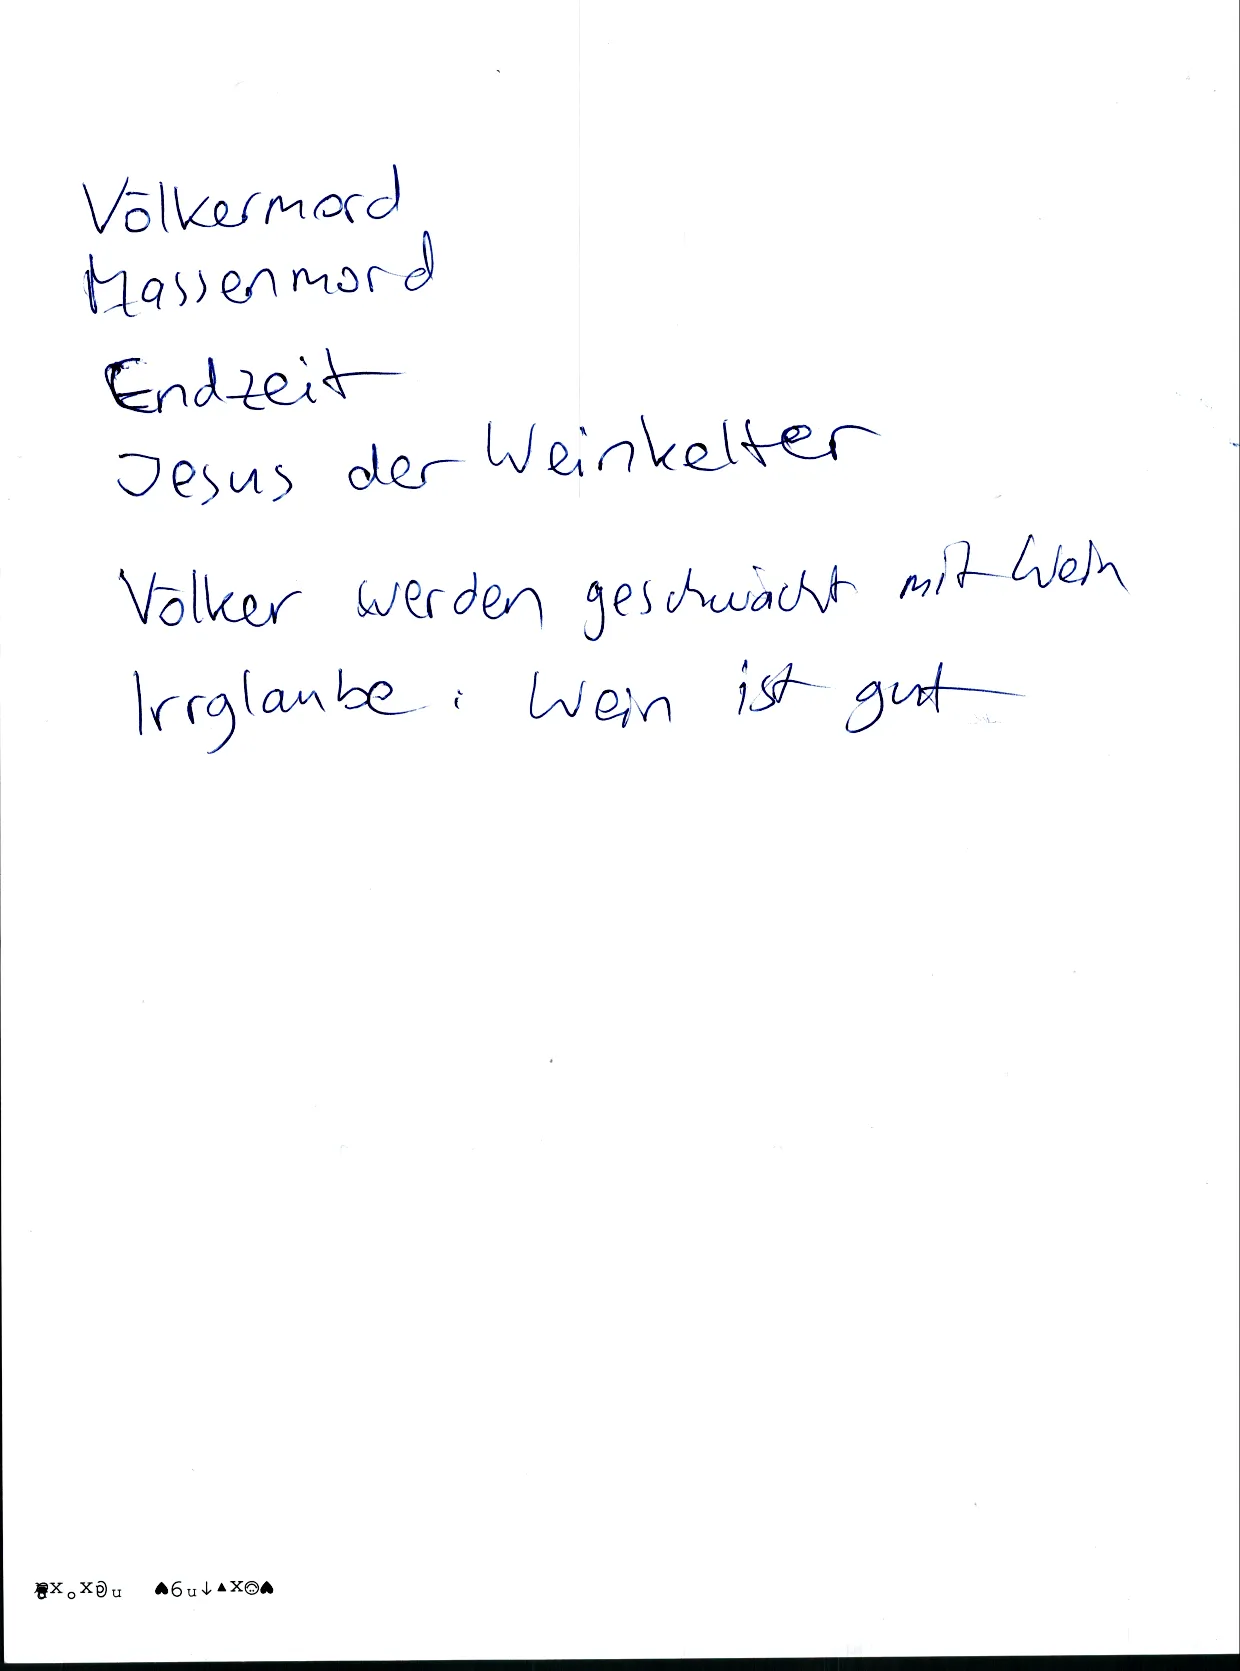 Völkermord
Massenmord
Endzeit
Jesus der Weinkelter
Völker werden geschwächt mit Wein
Irrglaube: Wein ist gut